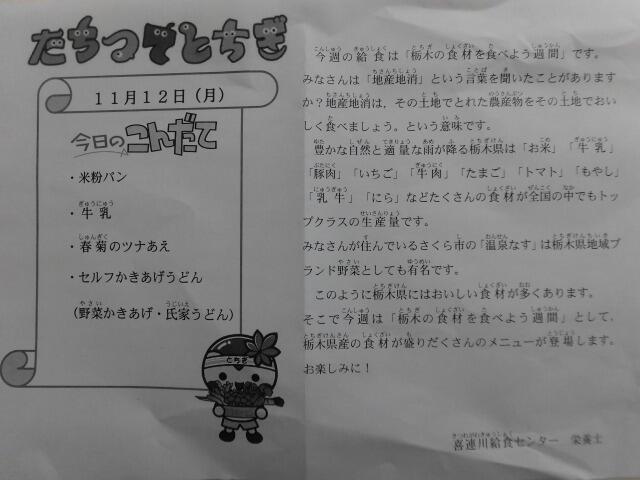 たちつてとちぎ
11月12日(月)
今日のこんだて
・米粉パン
・牛乳
・春菊のツナあえ
・セルフかきあげうどん
(野菜かきあげ・氏家うどん)
とちぎ
今週の給食は「栃木の食材を食べよう週間」です。
みなさんは「地産地消」という言葉を聞いたことがあります
か?地産地消は、その土地でとれた農産物をその土地でおい
しく食べましょう。という意味です。
豊かな自然と適量な雨が降る栃木県は「お米」「牛乳」
「豚肉」「いちご」「牛肉」「たまご」「トマト」「もやし」
「乳牛」「にら」などたくさんの食材が全国の中でもトッ
プクラスの生産量です。
みなさんが住んでいるさくら市の「温泉なす」は栃木県地域ブ
ランド野菜としても有名です。
このように栃木県にはおいしい食材が多くあります。
そこで今週は「栃木の食材を食べよう週間」として、
栃木県産の食材が盛りだくさんのメニューが登場します。
お楽しみに!
喜連川給食センター 栄養士